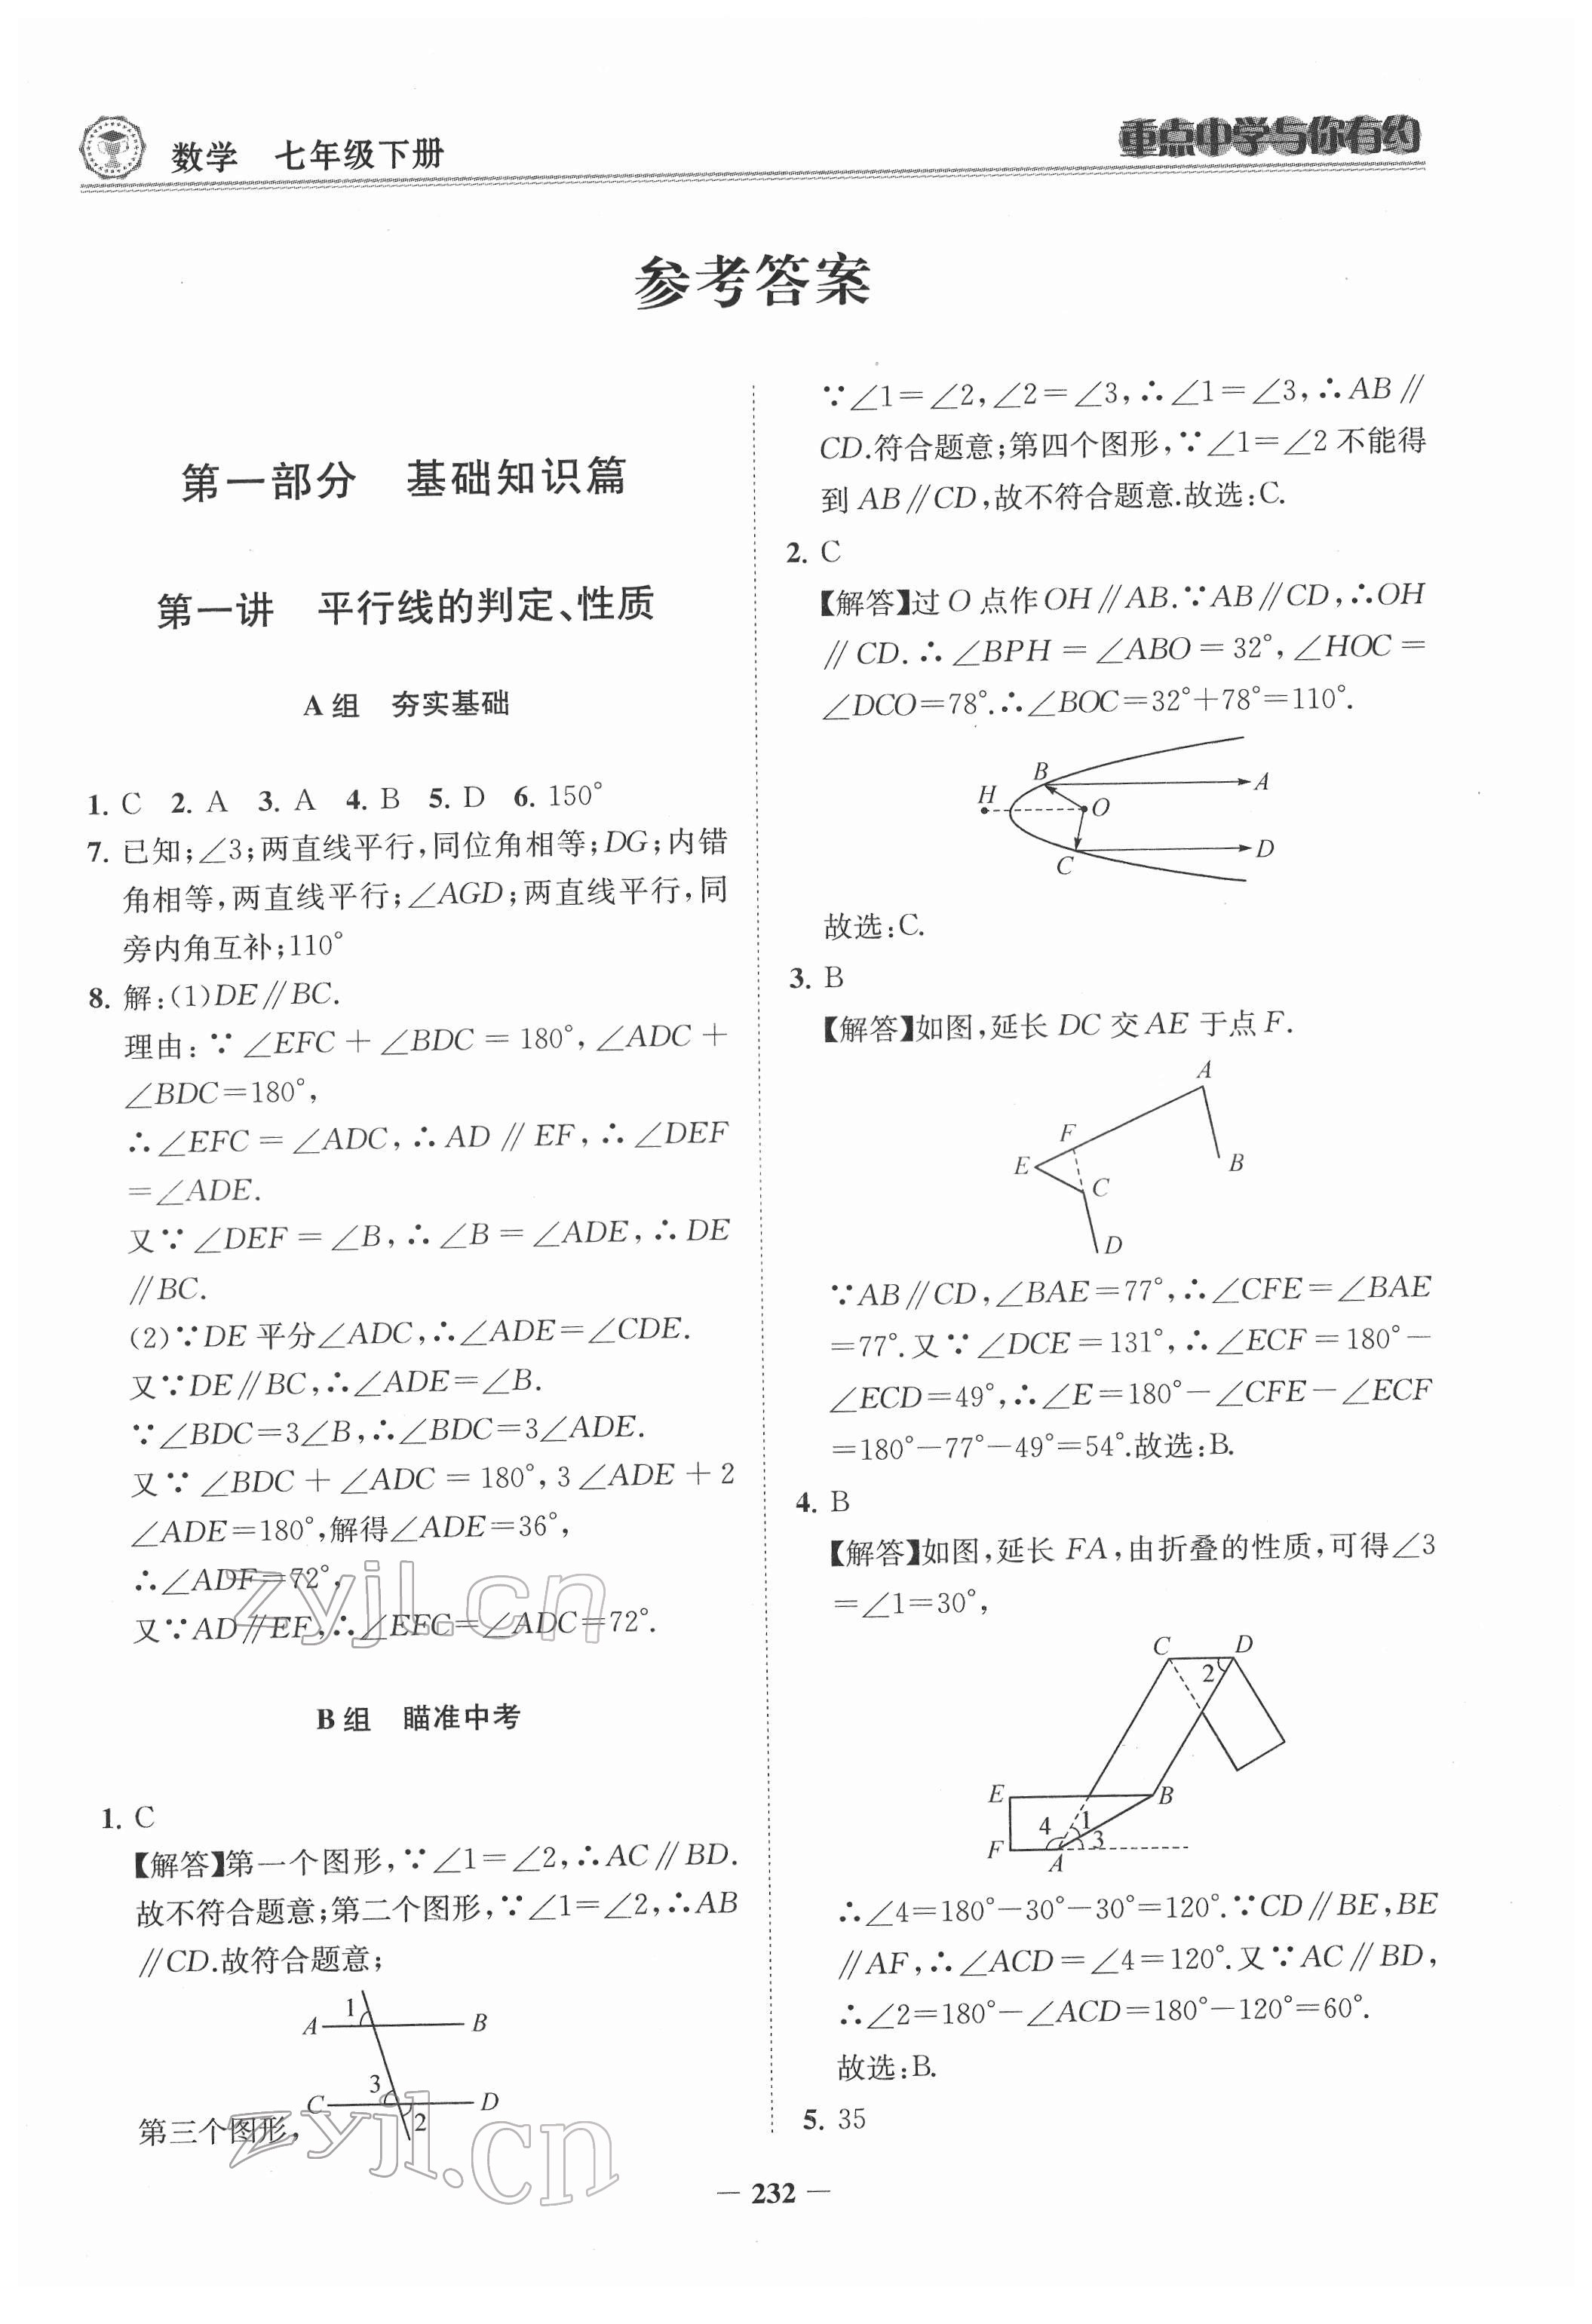 数学 七年级下册
重点中学与你有约
参考答案
第一部分 基础知识篇
第一讲 平行线的判定、性质
A组 夯实基础
1. C 2. A 3. A 4. B 5. D 6. 150°
7. 已知;∠3;两直线平行,同位角相等;DG;内错
角相等,两直线平行;∠AGD;两直线平行,同
旁内角互补;110°
8. 解:(1)DE∥BC.
理由:∵∠EFC+∠BDC=180°,∠ADC+
∠BDC=180°,
∴∠EFC=∠ADC,∴AD∥EF,∴∠DEF
=∠ADE.
又∵∠DEF=∠B,∴∠B=∠ADE,∴DE
∥BC.
(2)∵DE平分∠ADC,∴∠ADE=∠CDE.
又∵DE∥BC,∴∠ADE=∠B.
∵∠BDC=3∠B,∴∠BDC=3∠ADE.
又∵∠BDC+∠ADC=180°,3∠ADE+2
∠ADE=180°,解得∠ADE=36°,
∴∠ADF=72°,
又∵AD∥EF,∴∠EFC=∠ADC=72°.
zyjl.cn
B组 瞄准中考
1. C
【解答】第一个图形,∵∠1=∠2,∴AC∥BD.
故不符合题意;第二个图形,∵∠1=∠2,∴AB
∥CD.故符合题意;
1
A B
3
C D
2
第三个图形,
zyjl.cn
∵∠1=∠2,∠2=∠3,∴∠1=∠3,∴AB∥
CD.符合题意;第四个图形,∵∠1=∠2不能得
到AB∥CD,故不符合题意.故选:C.
2. C
【解答】过O点作OH∥AB.∵AB∥CD,∴OH
∥CD.∴∠BPH=∠ABO=32°,∠HOC=
∠DCO=78°.∴∠BOC=32°+78°=110°.
B A
H O
C D
故选:C.
3. B
【解答】如图,延长DC交AE于点F.
A
F
E B
C
D
∵AB∥CD,∠BAE=77°,∴∠CFE=∠BAE
=77°.又∵∠DCE=131°,∴∠ECF=180°-
∠ECD=49°,∴∠E=180°-∠CFE-∠ECF
=180°-77°-49°=54°.故选:B.
4. B
【解答】如图,延长FA,由折叠的性质,可得∠3
=∠1=30°,
C D
2
E B
4 1 3
F A
∴∠4=180°-30°-30°=120°.∵CD∥BE,BE
∥AF,∴∠ACD=∠4=120°.又∵AC∥BD,
∴∠2=180°-∠ACD=180°-120°=60°.
故选:B.
5. 35
— 232 —